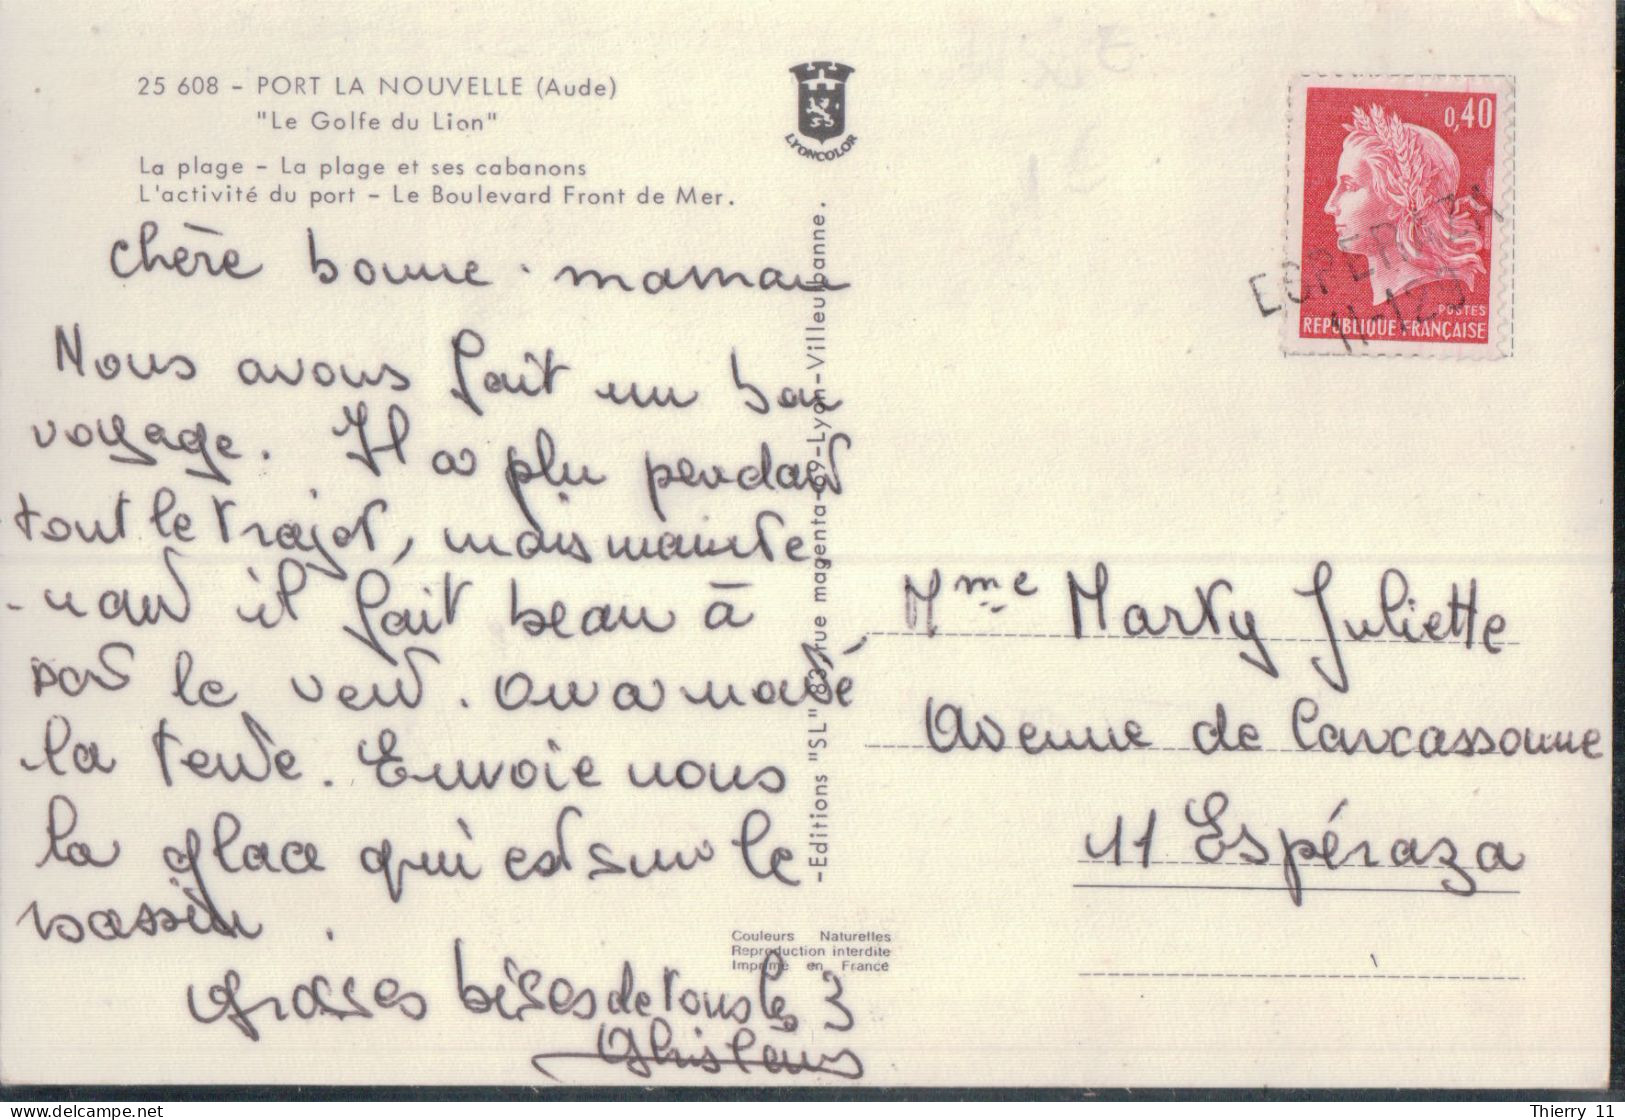 25 608 - PORT LA NOUVELLE (Aude)
"Le Golfe du Lion"
La plage - La plage et ses cabanons
L'activité du port - Le Boulevard Front de Mer.
LYONCOLOR
chère bonne-maman
Nous avons fait un bon
voyage. Il a plu pendant
tout le trajet, mais mainte
-nant il fait beau à
part le vent. On a monté
la tente. Envoie nous
la glace qui est sur le
bassin.
Grosses bises de tous les 3
Ghislaine
-Editions "SL" 83, rue magenta-69-Lyon-Villeurbanne.
Couleurs Naturelles
Reproduction interdite
Imprimé en France
0,40
POSTES
REPUBLIQUE FRANÇAISE
ESPERAZA
Mme Marty Juliette
Avenue de Carcassonne
11 Espéraza
delcampe.net
Thierry_11